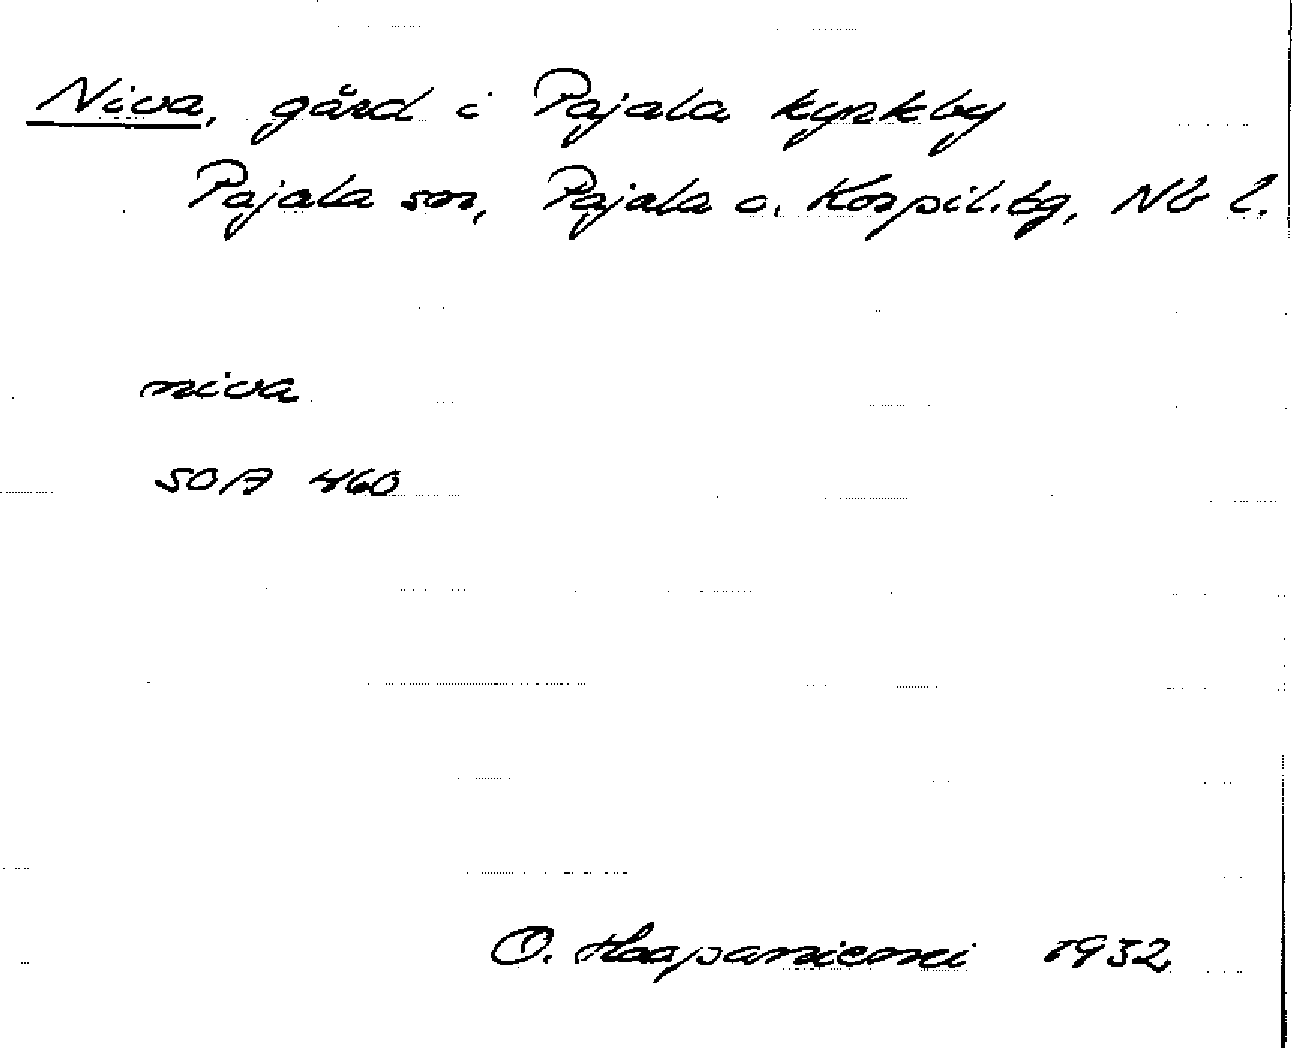 Niva, gård i Pajala kyrkby
Pajala sn, Pajala o. Korpil. tg, Nb l.
niva
SOA 460
O. Haapaniemi 1932